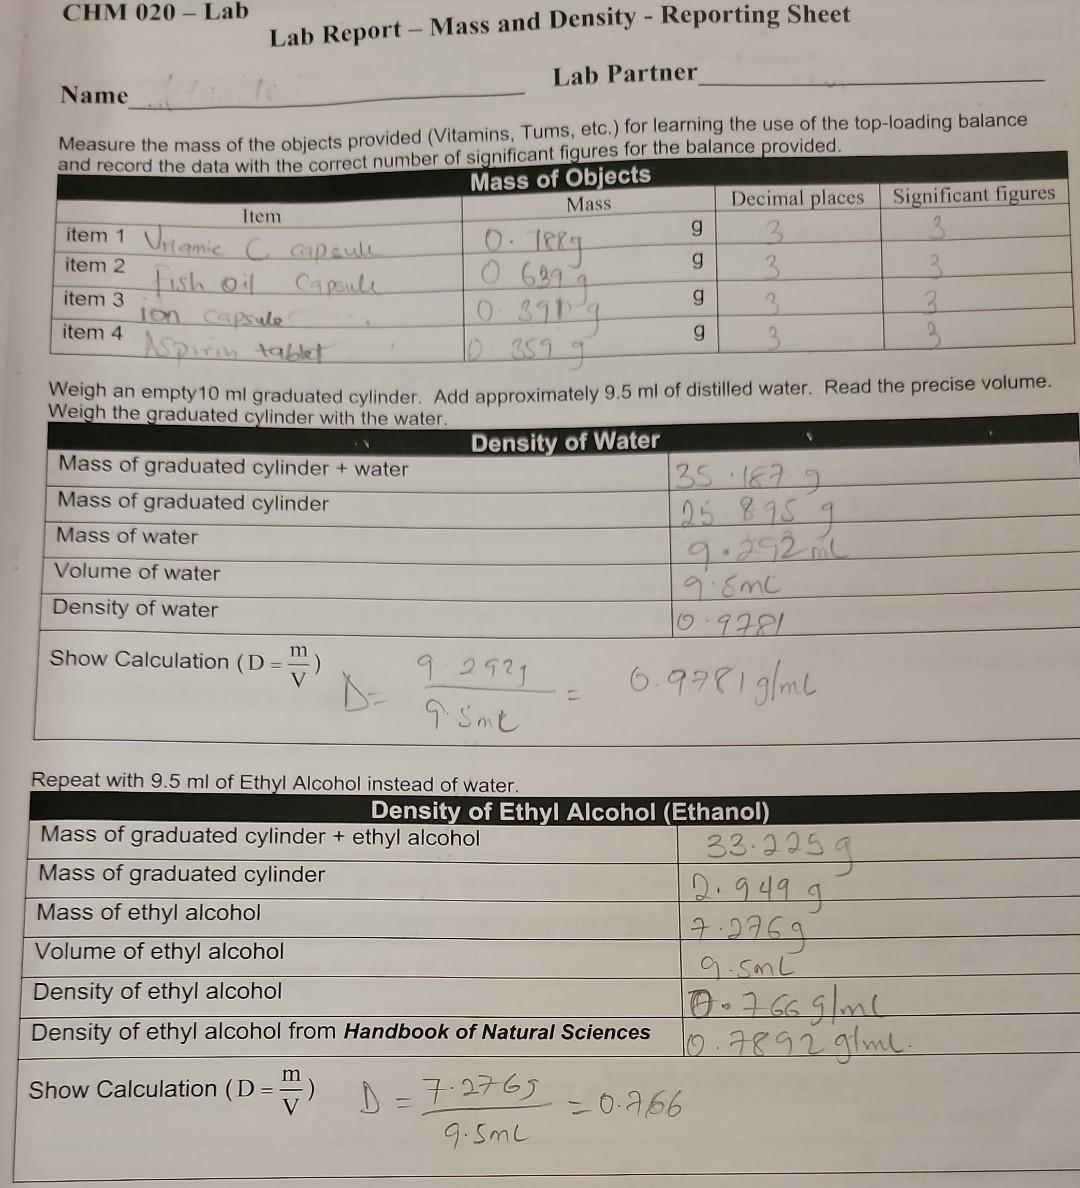 CHM 020 – Lab
Lab Report – Mass and Density - Reporting Sheet
Name
Lab Partner
Measure the mass of the objects provided (Vitamins, Tums, etc.) for learning the use of the top-loading balance
and record the data with the correct number of significant figures for the balance provided.
Mass of Objects
Item Mass Decimal places Significant figures
item 1 Vitamic C capsule 0.788g g 3 3
item 2 Fish oil Capsule 0 639 g g 3 3
item 3 ion capsule 0.391 g g 3 3
item 4 Aspirin tablet 0 359 g g 3 3
Weigh an empty10 ml graduated cylinder. Add approximately 9.5 ml of distilled water. Read the precise volume.
Weigh the graduated cylinder with the water.
Density of Water
Mass of graduated cylinder + water 35.187 g
Mass of graduated cylinder 25.895 g
Mass of water 9.292 mL
Volume of water 9.5mL
Density of water 0.9781
Show Calculation ( D = m/V ) D = 9.292g / 9.5mL = 0.9781 g/mL
Repeat with 9.5 ml of Ethyl Alcohol instead of water.
Density of Ethyl Alcohol (Ethanol)
Mass of graduated cylinder + ethyl alcohol 33.225 g
Mass of graduated cylinder 2.949 g
Mass of ethyl alcohol 7.276 g
Volume of ethyl alcohol 9.5mL
Density of ethyl alcohol 0.766 g/mL
Density of ethyl alcohol from Handbook of Natural Sciences 0.7892 g/mL.
Show Calculation ( D = m/V ) D = 7.276g / 9.5mL = 0.766